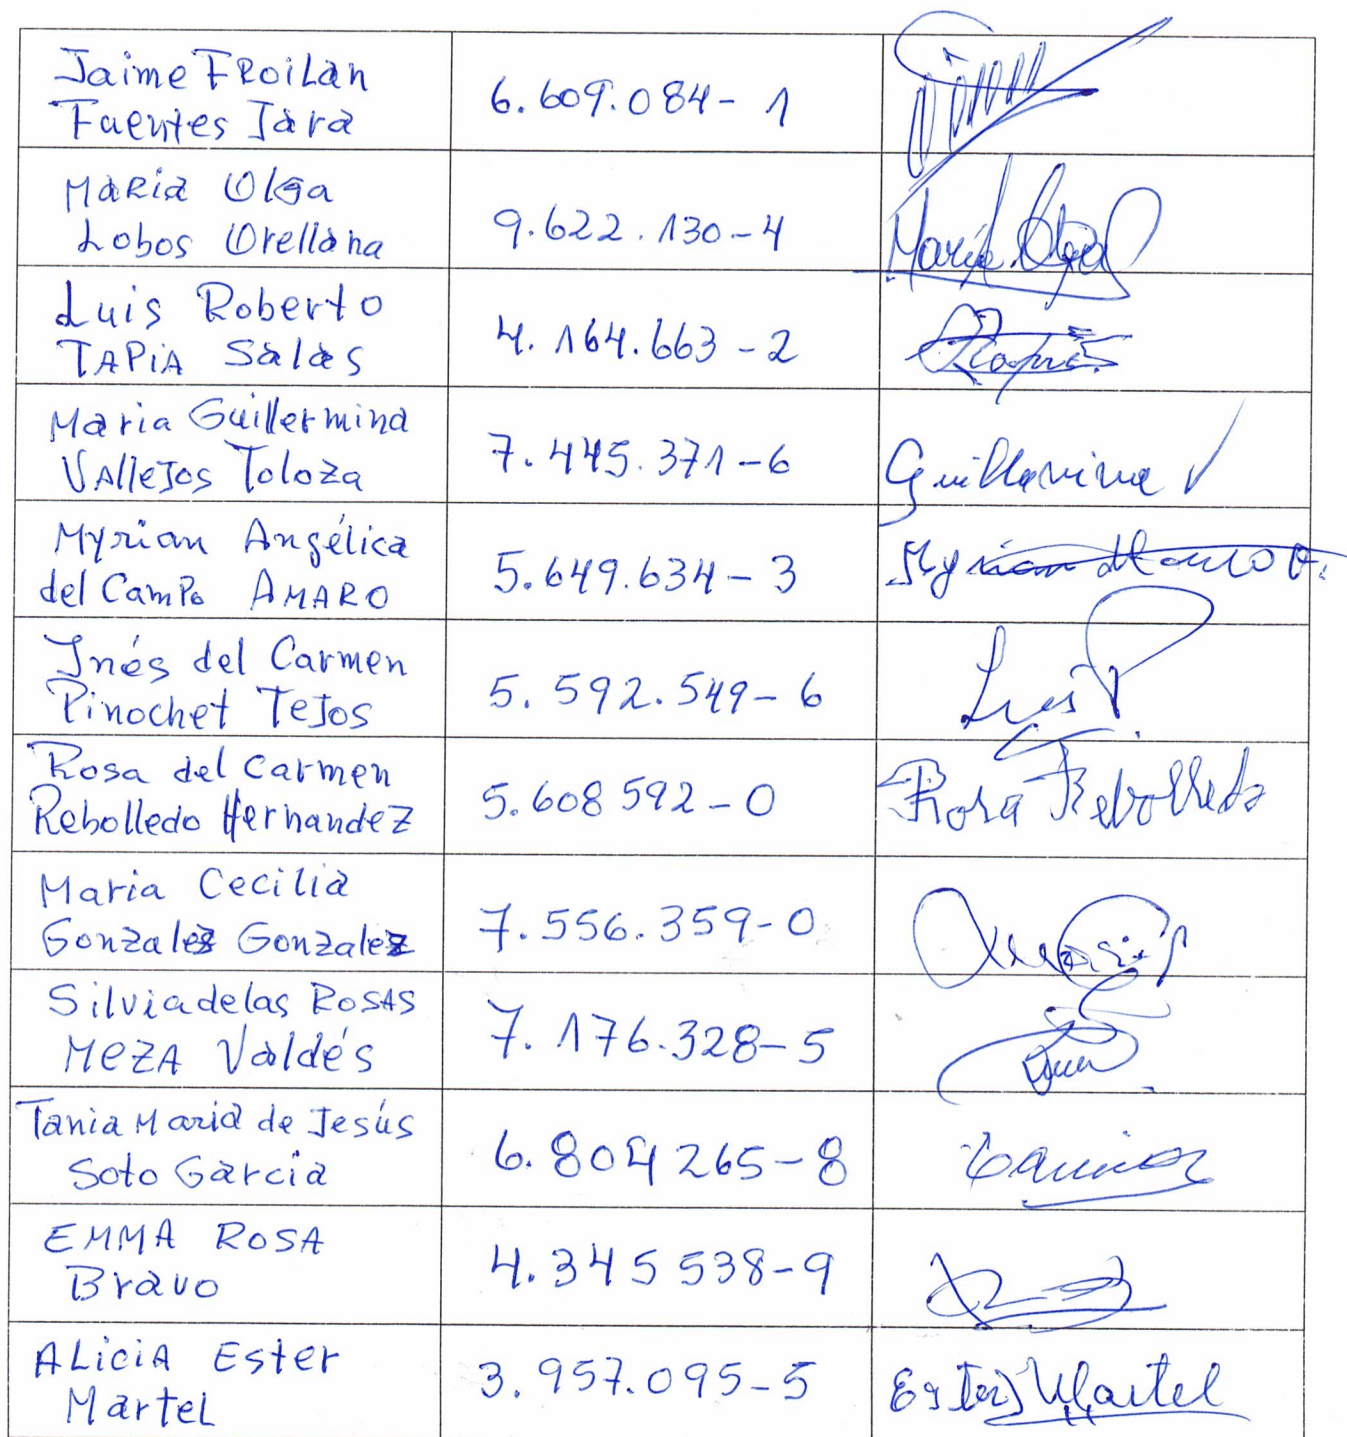 Jaime FRoiLan
Fuentes Jara
6.609.084-1
MaRia Olga
Lobos Orellana
9.622.130-4
Maria Olga
Luis Roberto
TAPiA Salas
4.164.663-2
Tapia S
Maria Guillermina
VAlleJos Toloza
7.445.371-6
Guillermina V
Myrian Angélica
del CamPo AMARO
5.649.634-3
Myriam
Inés del Carmen
Pinochet TeJos
5.592.549-6
Ines P.
Rosa del Carmen
Rebolledo HernandeZ
5.608592-0
Rosa Rebolledo
Maria Cecilia
Gonzalez Gonzalez
7.556.359-0
Silvia de las ROSAS
MeZA Valdés
7.176.328-5
Tania Maria de Jesús
Soto Garcia
6.804265-8
Tania
EMMA ROSA
Bravo
4.345538-9
ALiciA Ester
MarteL
3.957.095-5
Ester Martel